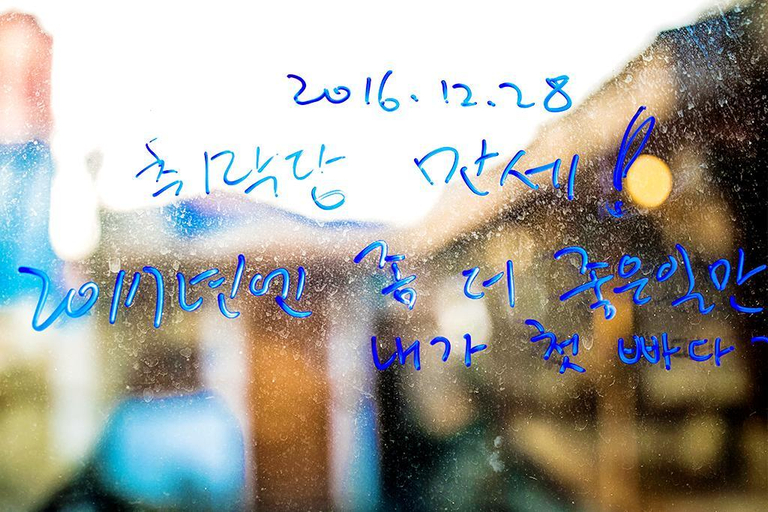 2016.12.28
취락당 만세!
2017년엔 좀 더 좋은일만
내가 첫 빠다~